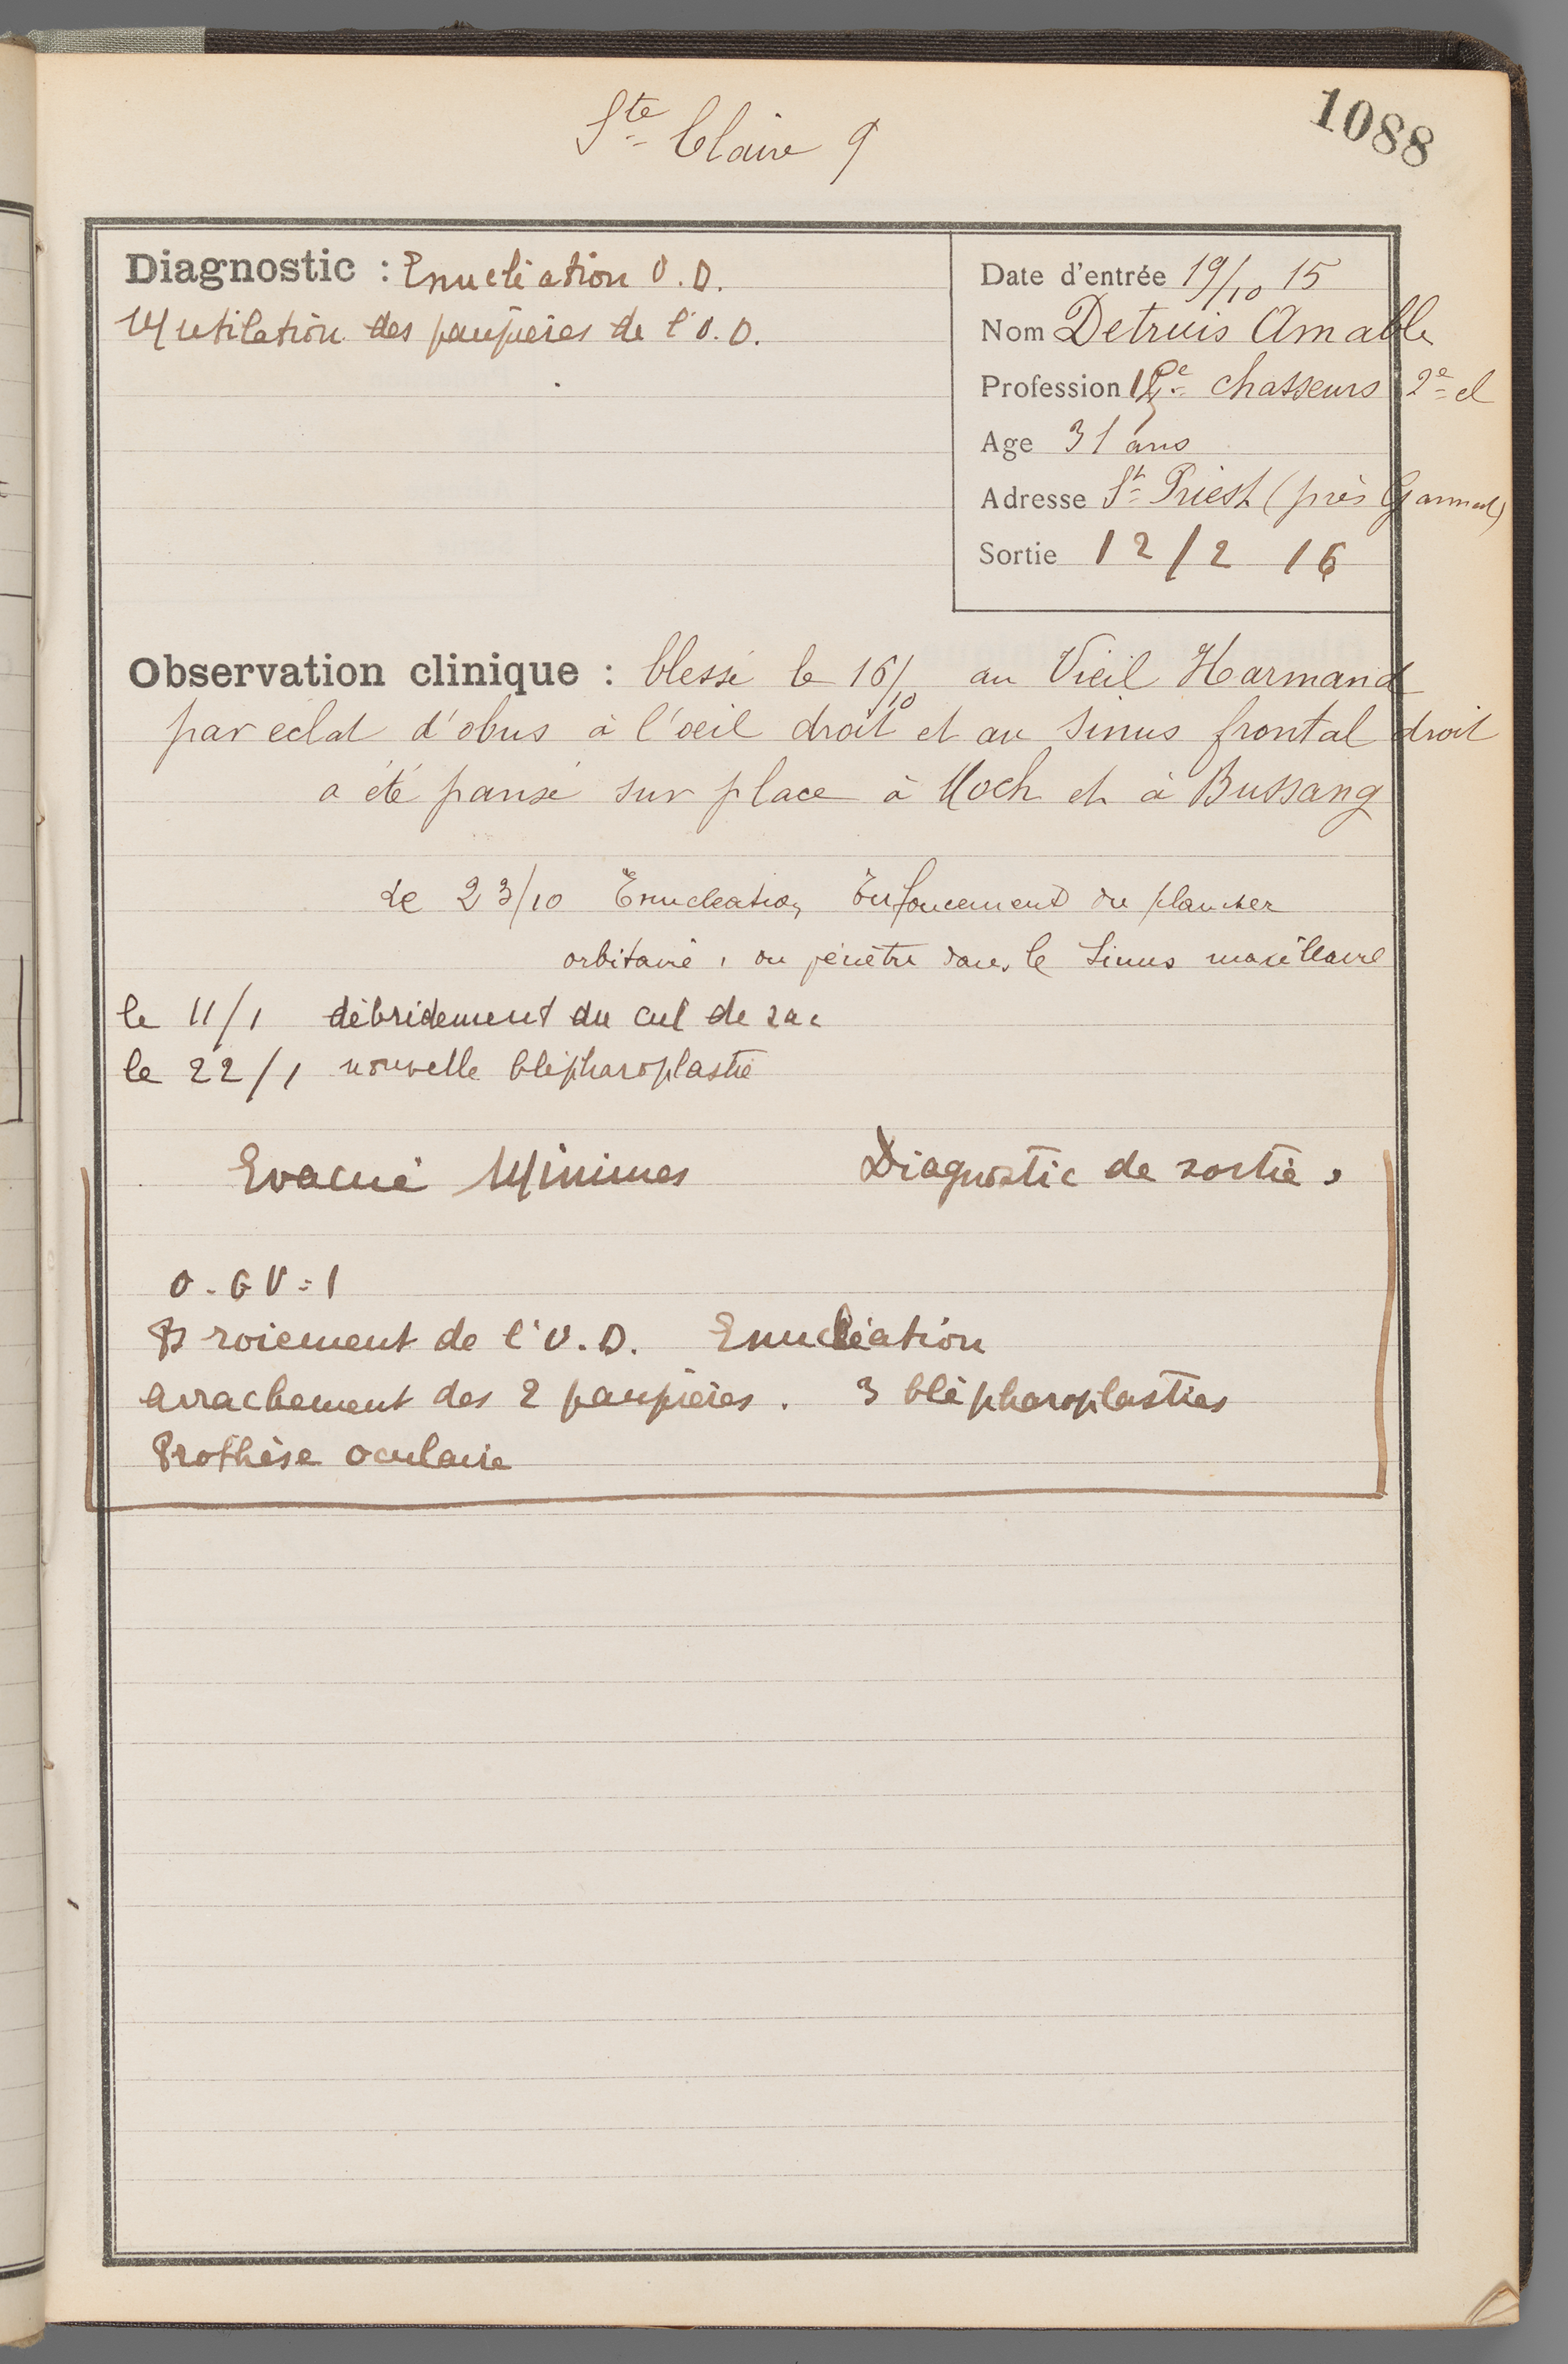 Ste Claire 9
1088
Diagnostic : Enucléation O.D.
Mutilation des paupières de l'O.D.
Date d'entrée 19/10 15
Nom Detruis Amable
Profession chasseurs 2e cl
Age 31 ans
Adresse St Priest (près Gannat)
Sortie 12/2 16
Observation clinique : blessé le 16/10 au Vieil Harmand
par éclat d'obus à l'oeil droit et au sinus frontal droit
a été pansé sur place à Moch et à Bussang
Le 23/10 Enucleation Enfoncement du plancher
orbitaire, on pénètre dans le Sinus maxillaire
le 11/1 débridement du cul de sac
le 22/1 nouvelle blépharoplastie
Evacué Minimes Diagnostic de sortie,
O.G V=1
Broiement de l'O.D. Enucléation
Arrachement des 2 paupières. 3 blépharoplasties
Prothèse oculaire